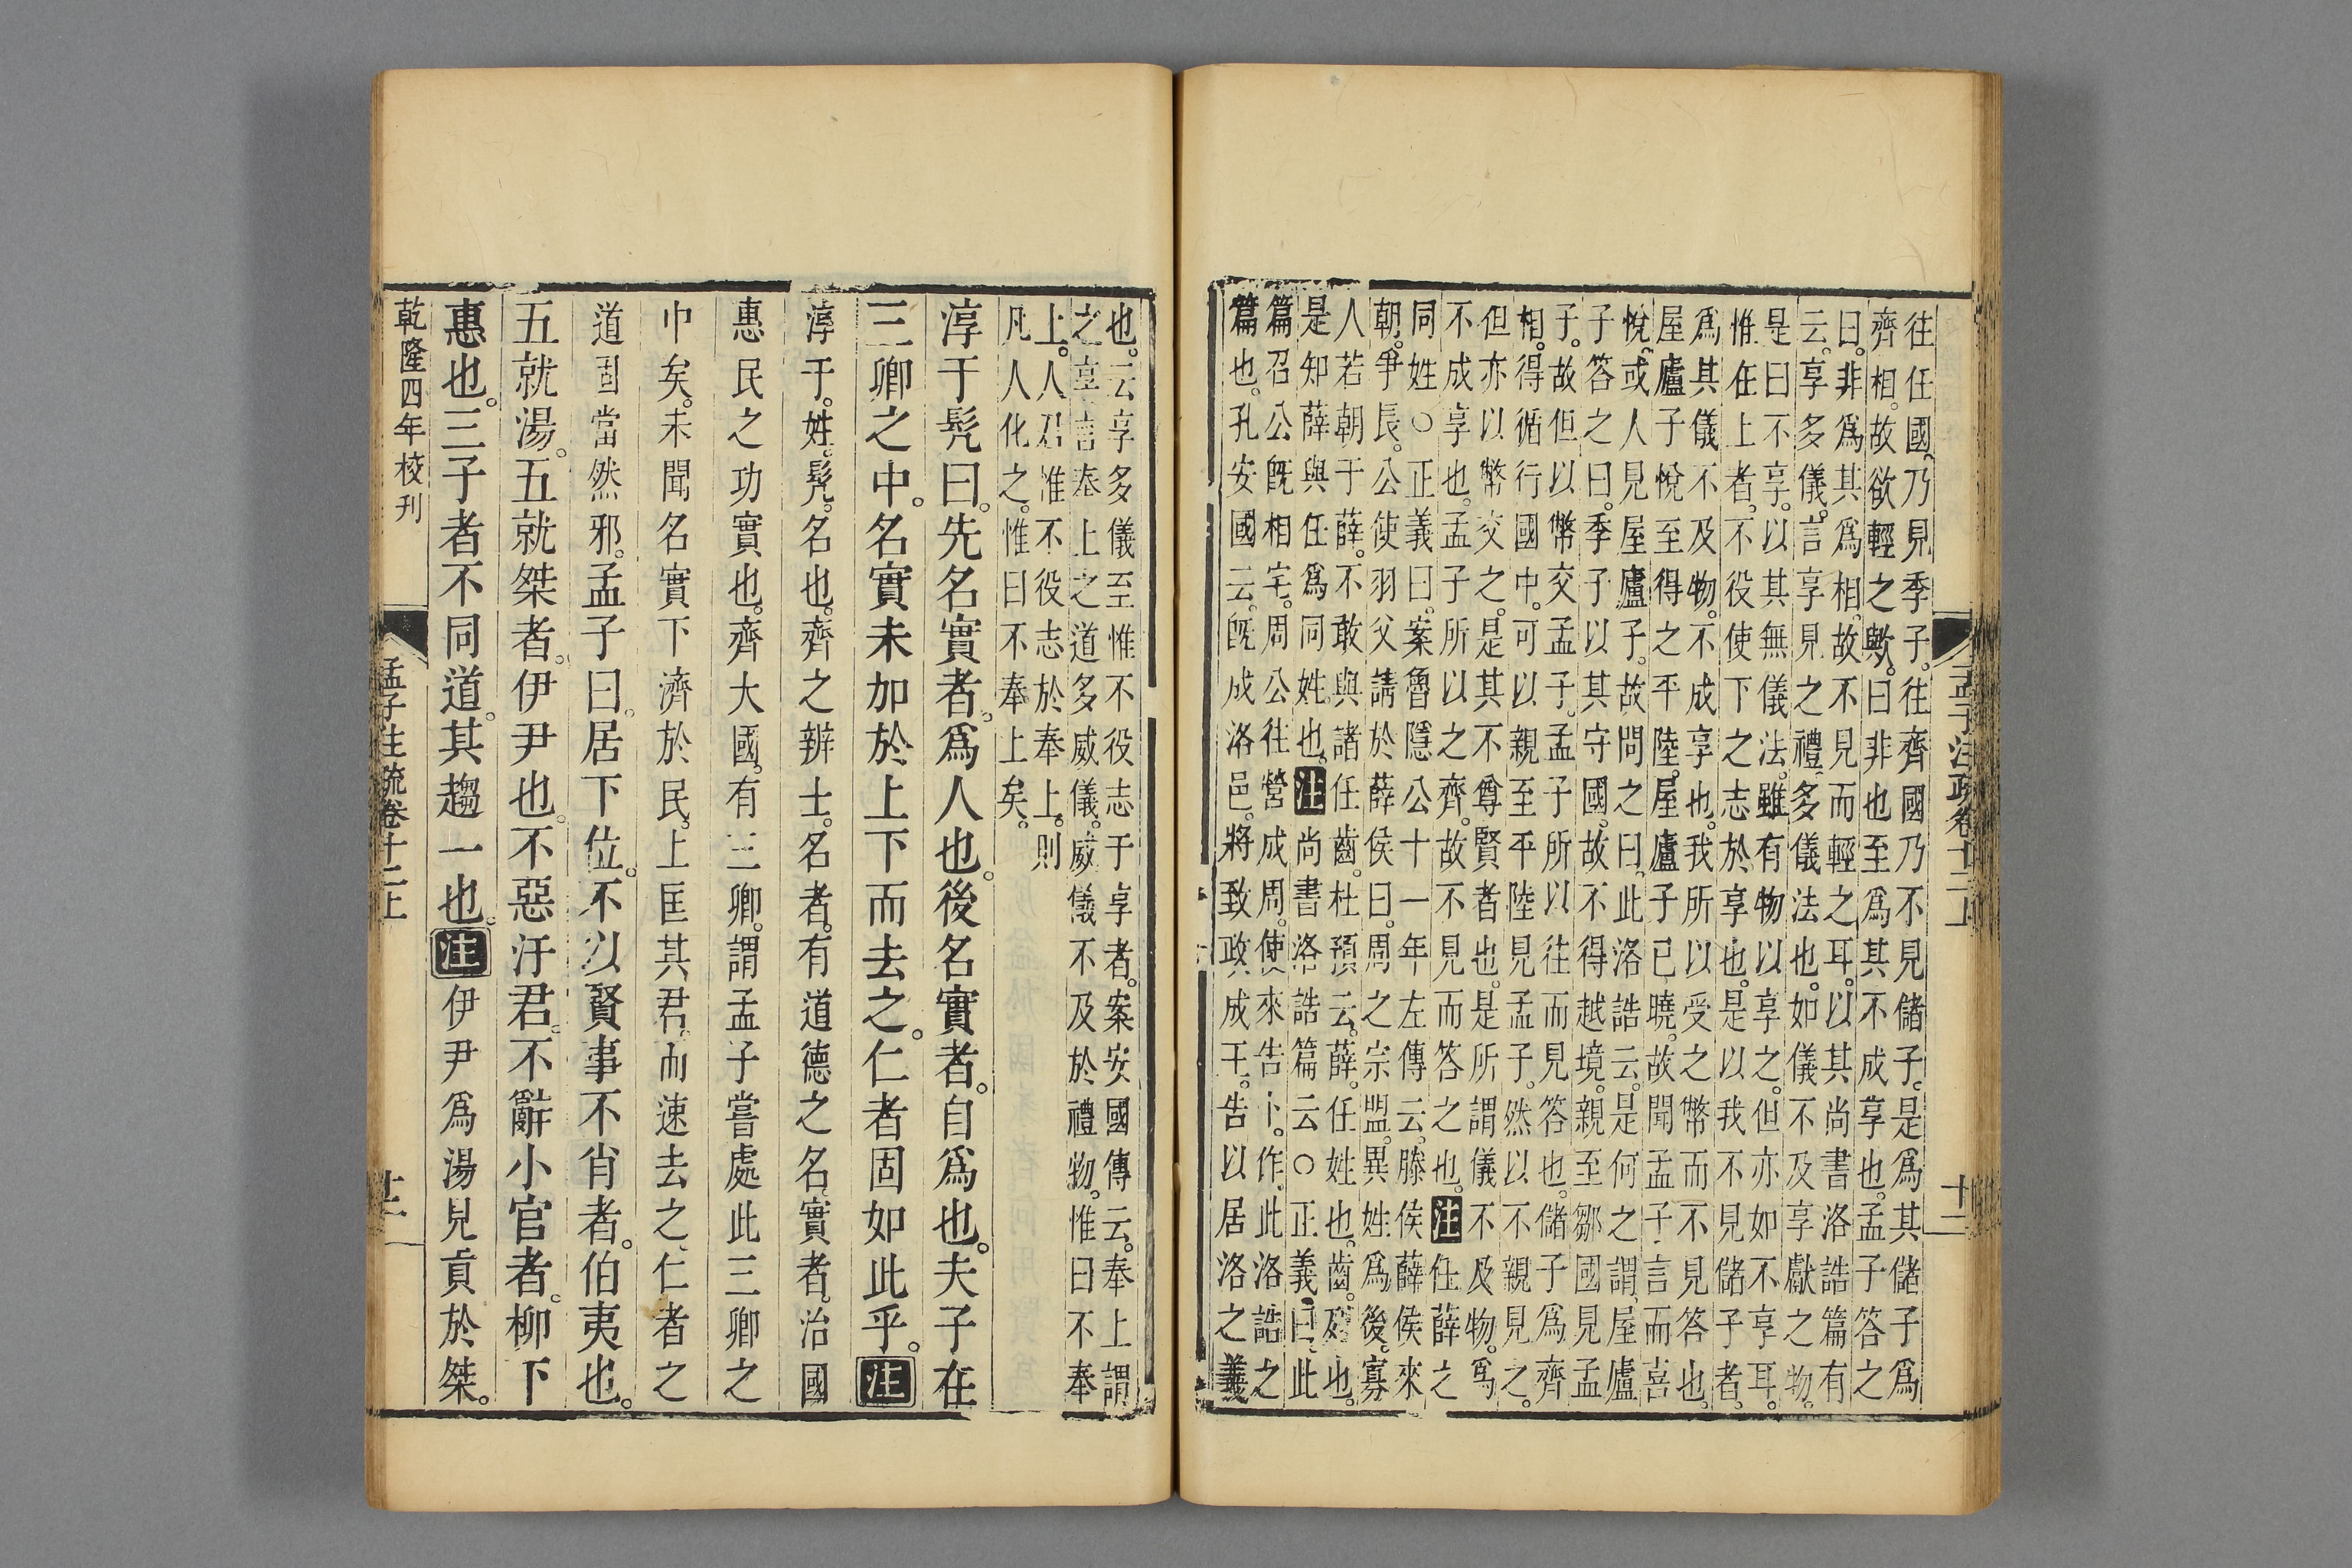 往任國乃見季子。往齊國乃不見儲子。是爲其儲子爲
齊相。故欲輕之歟。曰非也至爲其不成享也。孟子答之
曰。非爲其爲相。故不見而輕之耳。以其尚書洛誥篇有
云。享多儀。言享見之禮多儀法也。如儀不及享獻之物。
是曰不享。以其無儀法。雖有物以享之。但亦如不享耳。
惟在上者。不役使下之志於享也。是以我不見儲子者。
爲其儀不及物。不成享也。我所以受之幣而不見答也。
屋廬子悅至得之平陸。屋廬子已曉。故聞孟子言而喜
悅。或人見屋廬子。故問之曰。此洛誥云。是何之謂。屋廬
子答之曰。季子以其守國。故不得越境。親至鄒國見孟
子。故但以幣交孟子。孟子所以往而見答也。儲子爲齊
相。得循行國中。可以親至平陸見孟子。然以不親見之。
但亦以幣交之。是其不尊賢者也。是所謂儀不及物。爲
不成享也。孟子所以之齊。故不見而答之也。注任薛之
同姓〇正義曰。案魯隱公十一年左傳云。滕侯薛侯來
朝。爭長。公使羽父請於薛侯曰。周之宗盟。異姓爲後。寡
人若朝于薛。不敢與諸任齒。杜預云。薛。任姓也。齒。列也。
是知薛與任爲同姓也。注尚書洛誥篇云〇正義曰。此
篇召公旣相宅。周公往營成周。使來告卜。作此洛誥之
篇也。孔安國云。旣成洛邑。將致政成王。告以居洛之義
孟子注疏卷十二上
十一
也。云享多儀至惟不役志于享者。案安國傳云。奉上謂
之享。言奉上之道多威儀。威儀不及於禮物。惟曰不奉
上。人君惟不役志於奉上。則
凡人化之。惟曰不奉上矣。
淳于髡曰。先名實者。爲人也。後名實者。自爲也。夫子在
三卿之中。名實未加於上下而去之。仁者固如此乎。注
淳于。姓。髡。名也。齊之辨士。名者。有道德之名。實者。治國
惠民之功實也。齊大國。有三卿。謂孟子嘗處此三卿之
中矣。未聞名實下濟於民。上匡其君。而速去之。仁者之
道固當然邪。孟子曰。居下位。不以賢事不肖者。伯夷也。
五就湯。五就桀者。伊尹也。不惡汙君。不辭小官者。柳下
惠也。三子者不同道。其趨一也。注伊尹爲湯見貢於桀。
乾隆四年校刊
孟子注疏卷十二上